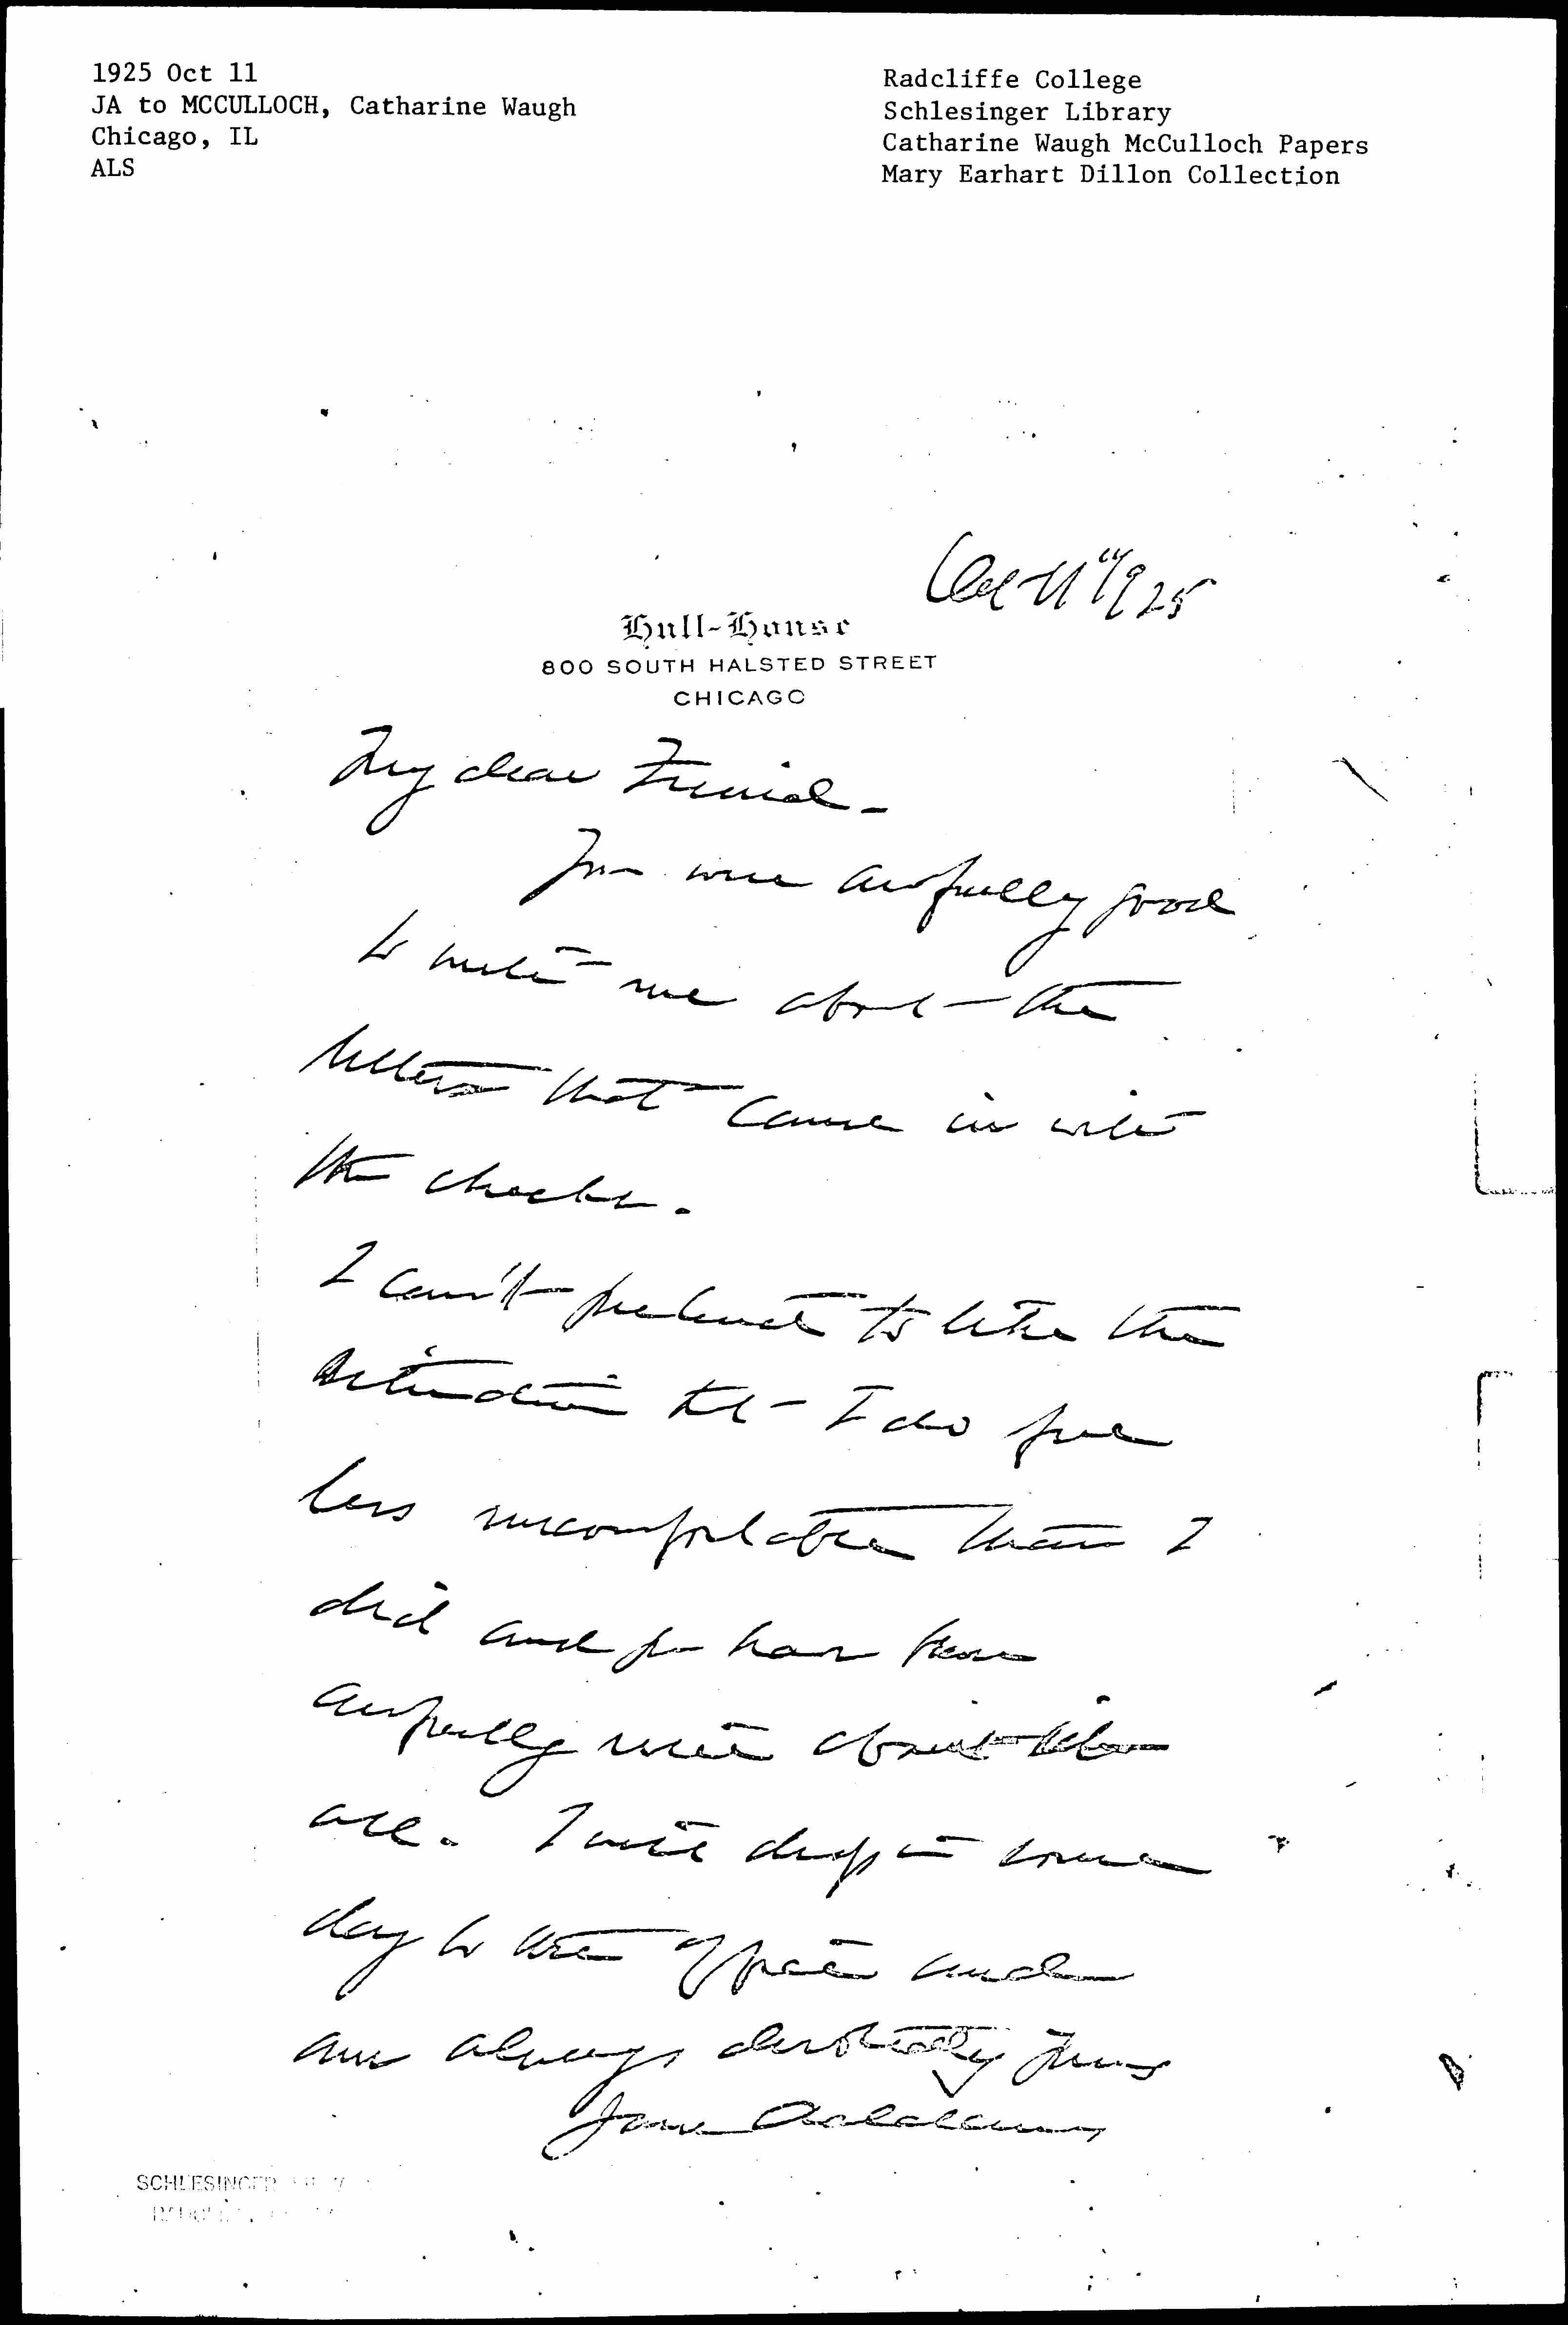 1925 Oct 11
JA to MCCULLOCH, Catharine Waugh
Chicago, IL
ALS
Radcliffe College
Schlesinger Library
Catharine Waugh McCulloch Papers
Mary Earhart Dillon Collection
Oct 11" 1925
Hull-House
800 SOUTH HALSTED STREET
CHICAGO
My dear Friend -
You were awfully good
to write me about the
letters that came in with
the checks.
I can't pretend to like the
situation but I do feel
less uncomfortable than I
did and you have been
awfully nice about it
all. I will drop in some
day to the office and
am always devotedly yours
Jane Addams
SCHLESINGER